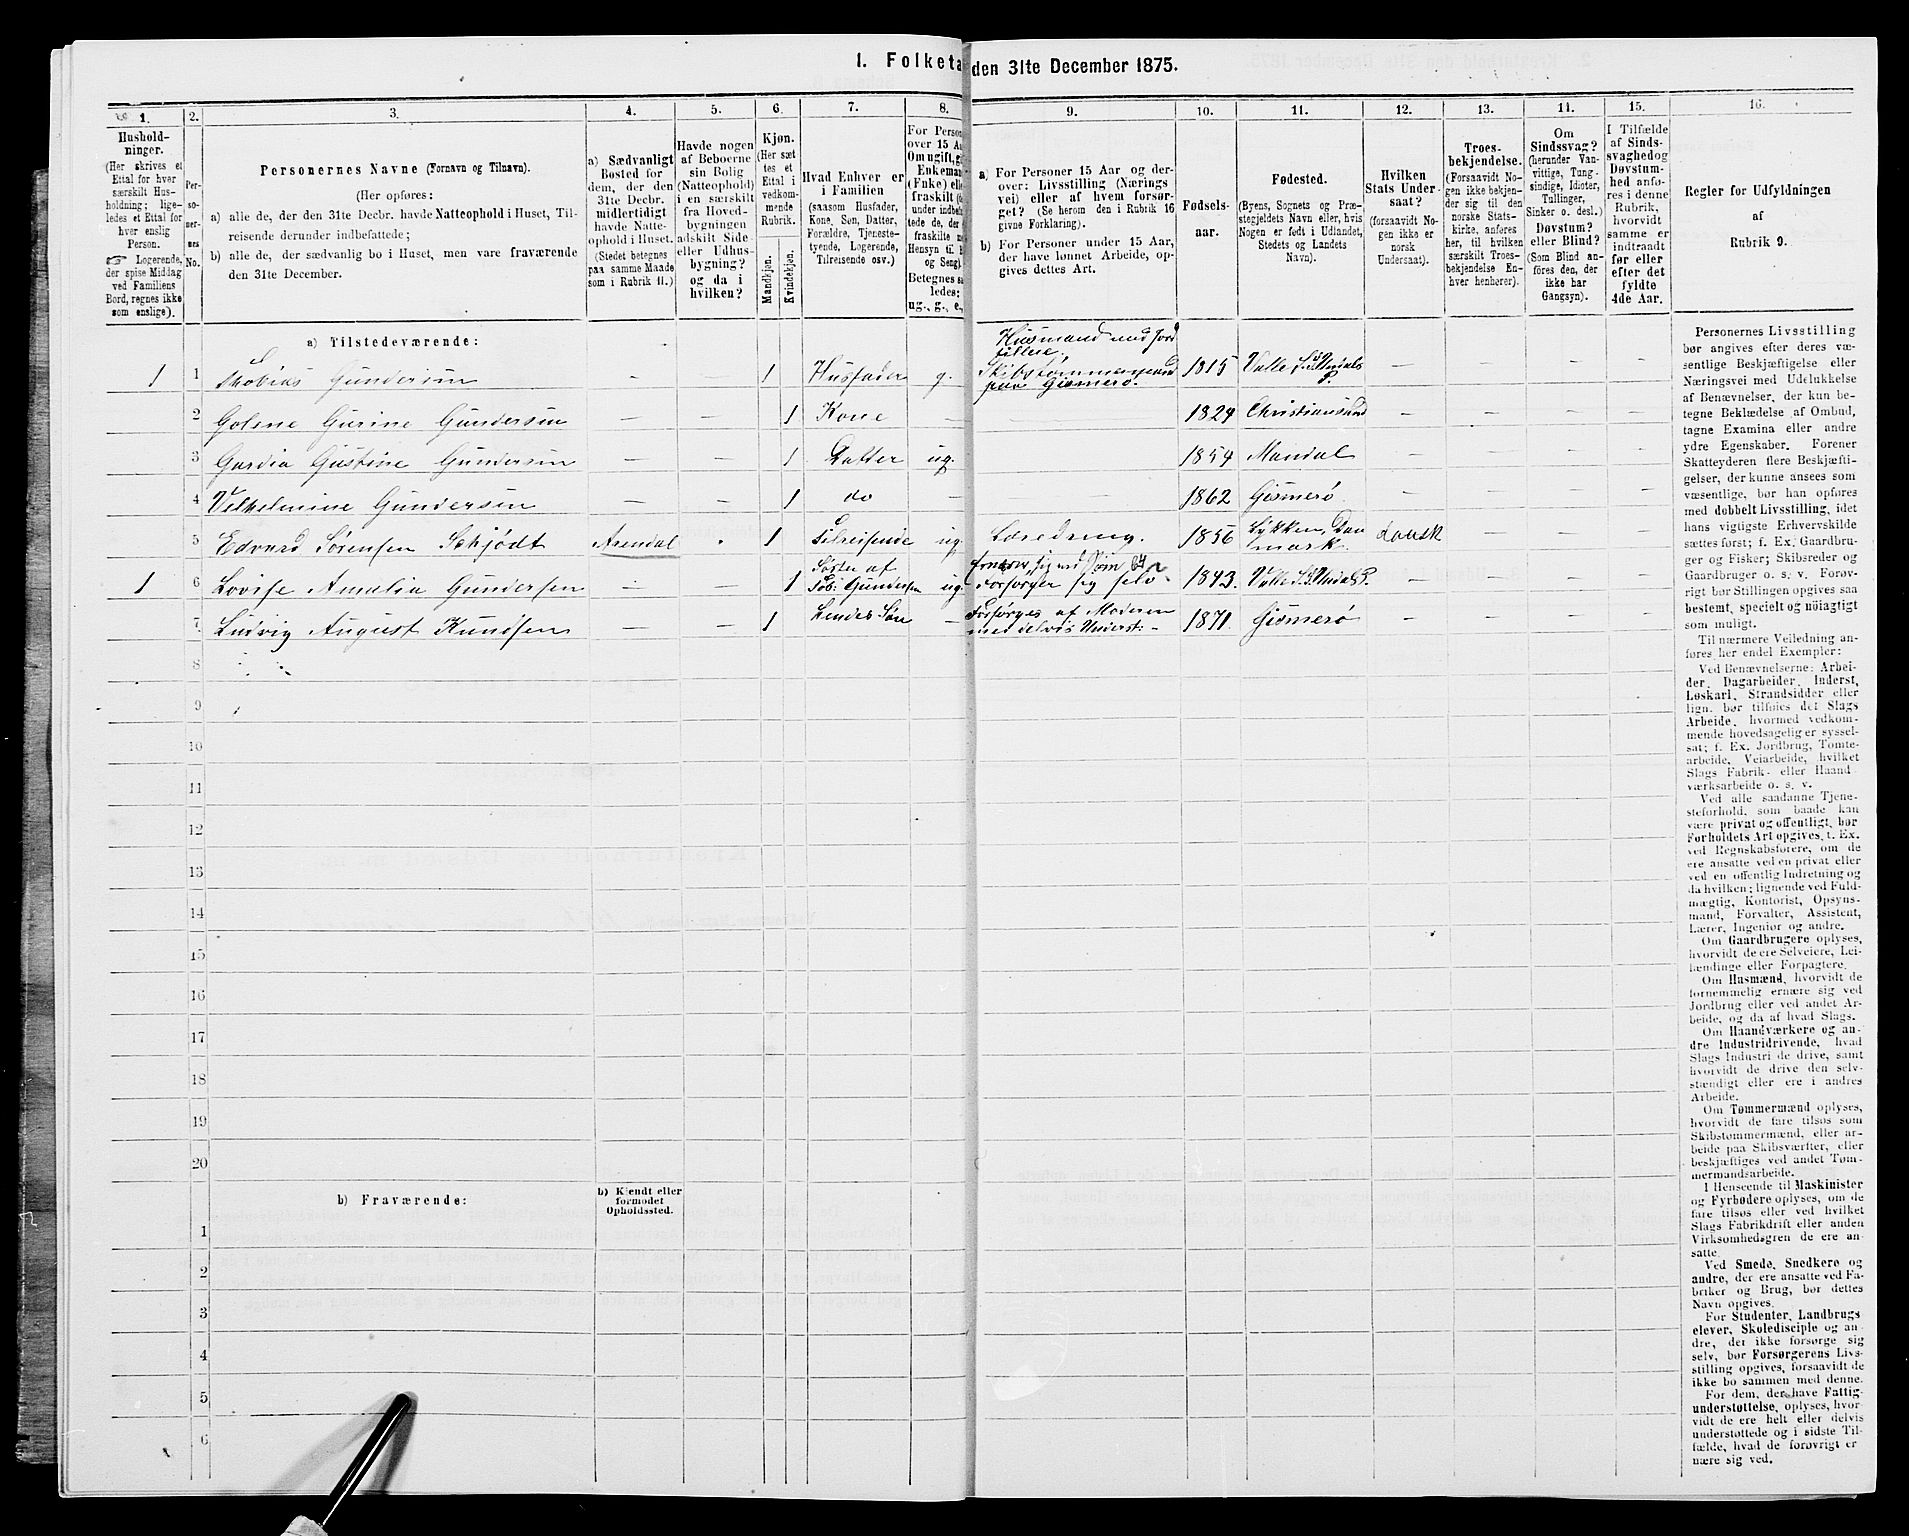 1. Folketa den 31te December 1875.
1. 2. 3. 4. 5. 6. 7. 8. 9. 10. 11. 12. 13. 14. 15. 16.
Hushold-
ninger.
(Her skrives et
Ettal for hver
særskilt Hus-
holdning; lige-
ledes et Ettal for
hver enslig
Person.
☞ Logerende,
der spise Middag
ved Familiens
Bord, regnes ikke
som enslige).
Per-
so-
ner-
nes
No.
Personernes Navne (Fornavn og Tilnavn).
(Her opføres:
a) alle de, der den 31te Decbr. havde Natteophold i Huset, Til-
reisende derunder indbefattede;
b) alle de, der sædvanlig bo i Huset, men vare fraværende
den 31te December.
a) Sædvanligt
Bosted for
dem, der den
31te Decbr.
midlertidigt
havde Natte-
ophold i Huset.
(Stedet betegnes
paa samme Maade
som i Rubrik 11.)
Havde nogen
af Beboerne
sin Bolig
(Natteophold)
i en særskilt
fra Hoved-
bygningen
adskilt Side-
eller Udhus-
bygning?
og da i
hvilken?
Kjøn.
(Her sæt
tes et
Ettal i
vedkom-
mende
Rubrik.
Mandkjøn.
Kvindekjøn.
Hvad Enhver er
i Familien
(saasom Husfader,
Kone, Søn, Datter,
Forældre, Tjeneste-
tyende, Logerende,
Tilreisende osv.)
For Person
over 15 A
Om ugift, g
Enkeman
(Enke) elle
fraskilt (
under indbe
tede de, der
fraskilte m
Hensyn til B
og Seng).
Betegnes s
ledes:
ug., g., e.,
a) For Personer 15 Aar og der-
over: Livsstilling (Nærings
vei) eller af hvem forsør-
get? (Se herom den i Rubrik 16
givne Forklaring).
b) For Personer under 15 Aar,
der have lønnet Arbeide, op-
gives dettes Art.
Fødsels-
aar.
Fødested.
(Byens, Sognets og Præ-
stegjeldets Navn eller, hvis
Nogen er født i Udlandet,
Stedets og Landets
Navn).
Hvilken
Stats Under-
saat?
(forsaavidt No-
gen ikke er
norsk
Undersaat).
Troes-
bekjendelse.
(Forsaavidt No-
gen ikke bekjen-
der sig til den
norske Stats-
kirke, anføres
her, til hvilken
særskilt Troes-
bekjendelse En-
hver henhører).
Om
Sindssvag?
(herunder Van-
vittige, Tung-
sindige, Idioter,
Tullinger,
Sinker o. desl.)
Døvstum?
eller Blind?
(Som Blind an-
føres den, der
ikke har
Gangsyn).
I Tilfælde
af Sinds-
svaghed og
Døvstum-
hed anfø-
res i denne
Rubrik,
hvorvidt
samme er
indtraadt
før eller
efter det
fyldte
4de Aar.
Regler for Udfyldningen
af
Rubrik 9.
a) Tilstedeværende:
1 1 Thobias Gundersen — — 1 Husfader g. Huusmand med Jord
Skibstømmermand
paa Gismerø. 1815 Valle S. & Undals
P. — — —
2 Golene Gurine Gundersen — — 1 Kone — — 1829 Christiansand — — —
3 Gardia Gustine Gundersen — — 1 Datter ug. — 1859 Mandal — — —
4 Vilhelmine Gundersen — — 1 do — — 1862 Gismerø — — —
5 Edvard Sørensen Schjødt Arendal 1 Tilreisende ug. 1856 Løkken, Dan
mark. dansk — —
1 6 Lovise Amalia Gundersen — — 1 Søster af
Tob: Gundersen ug. Ernærer sig ved
Forsørger sig selv 1843. Valle S. S. Undals P. — — —
7 Ludvig August Knudsen — — 1 Hendes Søn — Forsørges af Moderen
med delvis Underst: — 1871. Gismerø — — —
8
9
10
11
12
13
14
15
16
17
18
19
20
b) Fraværende:
b) Kjendt eller
formodet
Opholdssted.
1
2
3
4
5
6
Personernes Livsstilling
bør angives efter deres væ-
sentlige Beskjæftigelse eller
Næringsvei med Udelukkelse
af Benævnelser, der kun be-
tegne Beklædelse af Ombud,
tagne Examina eller andre
ydre Egenskaber. Forener
Skatteyderen flere Beskjæfti-
gelser, der kunne ansees som
væsentlige, bør han opføres
med dobbelt Livsstilling, idet
hans vigtigste Erhvervskilde
sættes først; f. Ex. Gaardbru-
ger og Fisker; Skibsreder og
Gaardbruger o. s. v. Forøv-
rigt bør Stillingen opgives saa
bestemt, specielt og nöiagtigt
som muligt.
Til nærmere Veiledning an-
føres her endel Exempler:
Ved Benævnelserne: Arbei-
der, Dagarbeider, Inderst,
Løskarl, Strandsidder eller
lign. bør tilføies det Slags
Arbeide, hvormed vedkom-
mende hovedsagelig er syssel-
sat; f. Ex. Jordbrug, Tomte-
arbeide, Veiarbeide, hvilket
Slags Fabrik- eller Haand-
værksarbeide o. s. v.
Ved alle saadanne Tjene-
steforhold, som baade kan
være privat og offentligt, bør
Forholdets Art opgives, t. Ex.
ved Regnskabsførere, om de
ere ansatte ved en privat eller
ved en offentlig Indretning og
da hvilken; lignende ved Fuld-
mægtig, Kontorist, Opsyns-
mand, Forvalter, Assistent,
Lærer, Ingeniør og andre.
Om Gaardbrugere oplyses,
hvorvidt de ere Selveiere, Lei-
lændinge eller Forpagtere.
Om Husmænd, hvorvidt de
fornemmelig ernære sig ved
Jordbrug eller ved andet Ar-
beide, og da af hvad Slags.
Om Haandværkere og an-
dre Industridrivende, hvad
Slags Industri de drive, samt
hvorvidt de drive den selv-
stændigt eller ere i andres
Arbeide.
Om Tømmermænd oplyses,
hvorvidt de fare tilsøs som
Skibstømmermænd, eller ar-
beide paa Skibsværfter, eller
beskjæftiges ved andet Tøm-
mermandsarbeide.
I Henseende til Maskinister
og Fyrbødere oplyses, om de
fare tilsøs eller ved hvilket
Slags Fabrikdrift eller anden
Virksomhedsgren de ere an-
satte.
Ved Smede, Snedkere og
andre, der ere ansatte ved Fa-
briker og Brug, bør dettes
Navn opgives.
For Studenter, Landbrugs
elever, Skoledisciple og an-
dre, der ikke forsørge sig
selv, bør Forsørgerens Livs-
stilling opgives, forsaavidt de
ikke bo sammen med denne.
For dem, der have Fattig-
understøttelse, oplyses, hvor-
vidt de ere helt eller delvis
understøttede og i sidste Til-
fælde, hvad de forøvrigt er
nære sig ved.